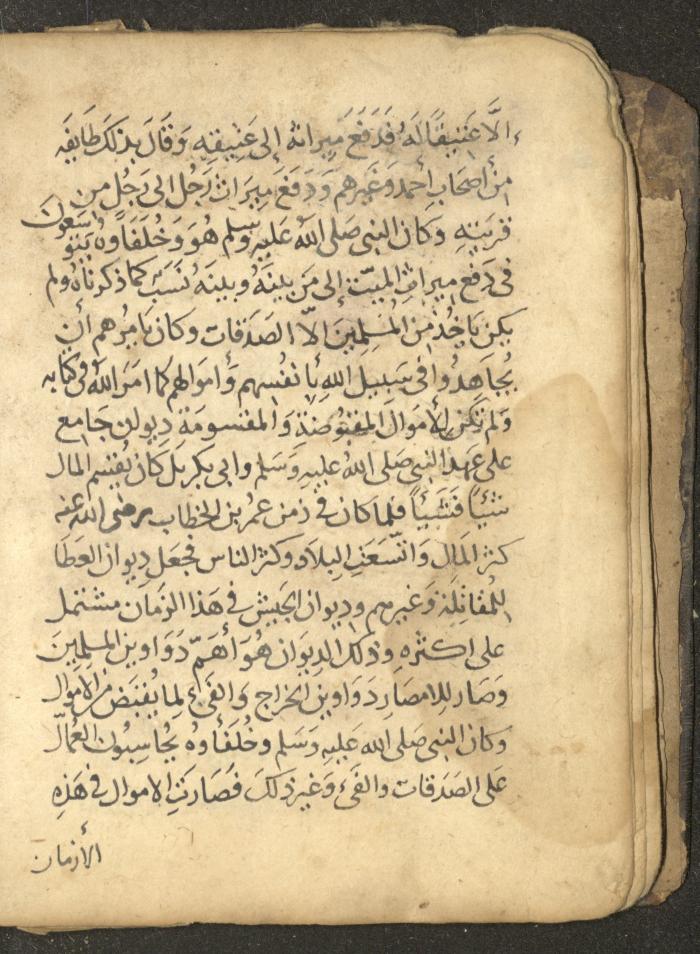 إلَّا عَتِيقًا لَهُ فَدَفَعَ مِيرَاثهُ إلى عَتِيقِهِ وَقَالَ بِذلكَ طَايفَه
مِنْ أصحَابِ أحمدَ وَغَيرهم وَدَفَعَ مِيرَاثَ رَجُلٍ الى رَجُلٍ من
قريَتِهِ وَكان النبي صَلى اللهُ عَليهِ وَسلم هُوَ وَخُلَفَاوهُ يَتوسَعُونَ
في دَفع ميراثِ الميّت إلى مَن بينَهُ وبينَهُ نَسَبٌ كما ذكرنَاهُ ولم
يكن يَاخُذ مِنَ المُسلِمينَ الاّ الصَدَقات وكان يَامُرُهم أن
يُجَاهِدُوا في سَبيل اللهِ بِأنفُسِهم وَأموَالهم كمَا امَرَ اللهُ في كتابه
وَلم تكن لِلأموَال المقبُوضَة وَالمقسُومَةِ دِيوان جَامِع
على عَهد النبي صَلى اللهُ عَليهِ وَسَلم وابى بكر بَل كان يُقسِم المال
شَيْئاً فَشَيْئاً فلما كان في زَمن عُمر بن الخطاب رضى الله عنه
كثرَ المَال وَاتَّسَعَتِ البِلَاد وكثر الناس فجعَل دِيوان العَطَا
للمُقَاتِلَة وَغيرهم وديوان الجَيش في هَذا الزمَان مُشتَمل
على اكثرهِ وذلك الدِيوَان هُوَ أهَمّ دَوَاوين المسلِمِينَ
وَصَار للامصَارِ دَوَاوين الخراج وَالفَيْءِ لِما يُقبَض من الاموال
وكان النبي صَلى الله عَليهِ وَسَلم وخُلَفَاوُه يُحَاسِبُون العُمَّال
عَلى الصَدَقات والفَئ وَغير ذلكَ فَصَارَتِ الاموال في هَذِهِ
الأزمان